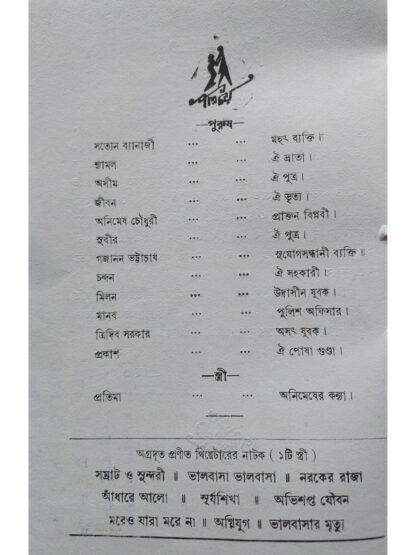 পরিচয়
—পুরুষ—
সত্যেন ব্যানার্জী ... ... মহৎ ব্যক্তি॥
শ্যামল ... ... ঐ ভ্রাতা।
অসীম ... ... ঐ পুত্র।
জীবন ... ... ঐ ভৃত্য।
অনিমেষ চৌধুরী ... ... প্রাক্তন বিপ্লবী।
সুবীর ... ... ঐ পুত্র।
গজানন ভট্টাচার্য ... ... সুযোগসন্ধানী ব্যক্তি॥
চন্দন ... ... ঐ সহকারী।
মিলন ... ... উদাসীন যুবক।
মানব ... ... পুলিশ অফিসার।
ত্রিদিব সরকার ... ... অসৎ যুবক।
প্রকাশ ... ... ঐ পোষা গুণ্ডা।
—স্ত্রী—
প্রতিমা ... ... অনিমেষের কন্যা।
অগ্রদূত প্রণীত থিয়েটারের নাটক ( ১টি স্ত্রী )
সম্রাট ও সুন্দরী ॥ ভালবাসা ভালবাসা ॥ নরকের রাজা
আঁধারে আলো ॥ সূর্যশিখা ॥ অভিশপ্ত যৌবন
মরেও যারা মরে না ॥ অগ্নিযুগ ॥ ভালবাসার মৃত্যু